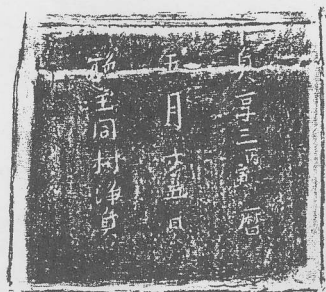 貞享三丙寅暦
五月十五日
施主同村浄貞